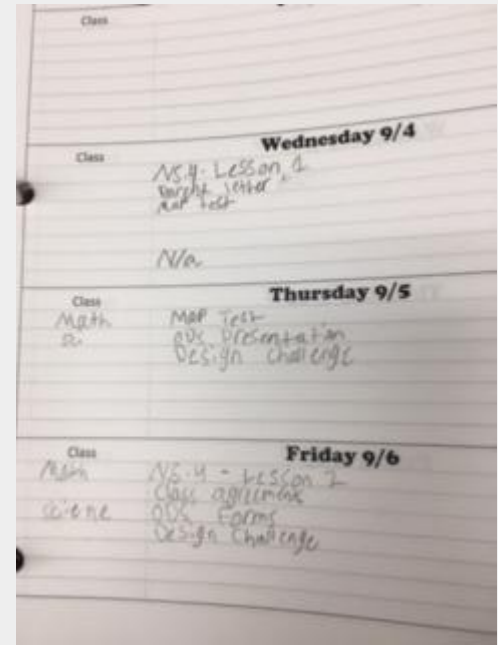 Class
Wednesday 9/4
Class
NS.4- Lesson 1
Parent letter
MAP test
N/a
Thursday 9/5
Class
Math MAP Test
Presentation
Design Challenge
Friday 9/6
Class
Math NS.4 - Lesson 2
Class agreement
Forms
Design Challenge